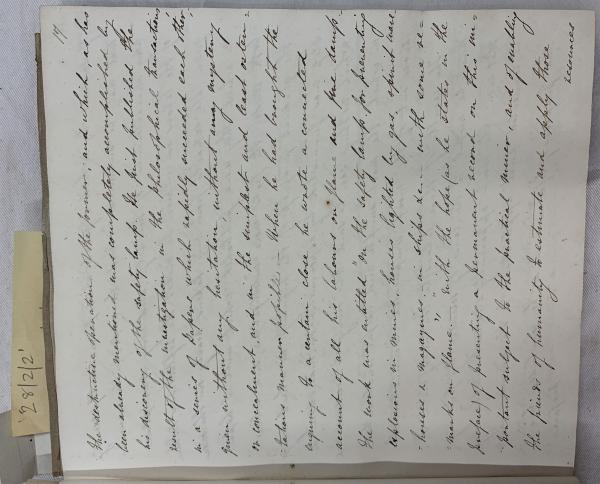 19.
the destructive operation of the former, and which, as has
been already mentioned was completely accomplished by
his discovery of the safety lamp. He first published the
result of the investigation in the Philosophical Transactions
in a series of papers which rapidly succeeded each other,
given without any hesitation without any mystery
or concealment and in the simplest and least osten-
-tatious manner possible. - When he had brought the
enquiry to a certain close he wrote a connected
account of all his labours on flame and fire damp.
The work was entitled "On the safety lamp for preventing
explosions in mines, houses lighted by gas, spirit ware-
-houses or magazines in ships &c. - with some re-
-marks on flame" - with the hope (as he states in the
preface) of presenting a permanent record on this im-
portant subject to the practical miner, and of enabling
the friends of humanity to estimate and apply those
resources
28/2/2'